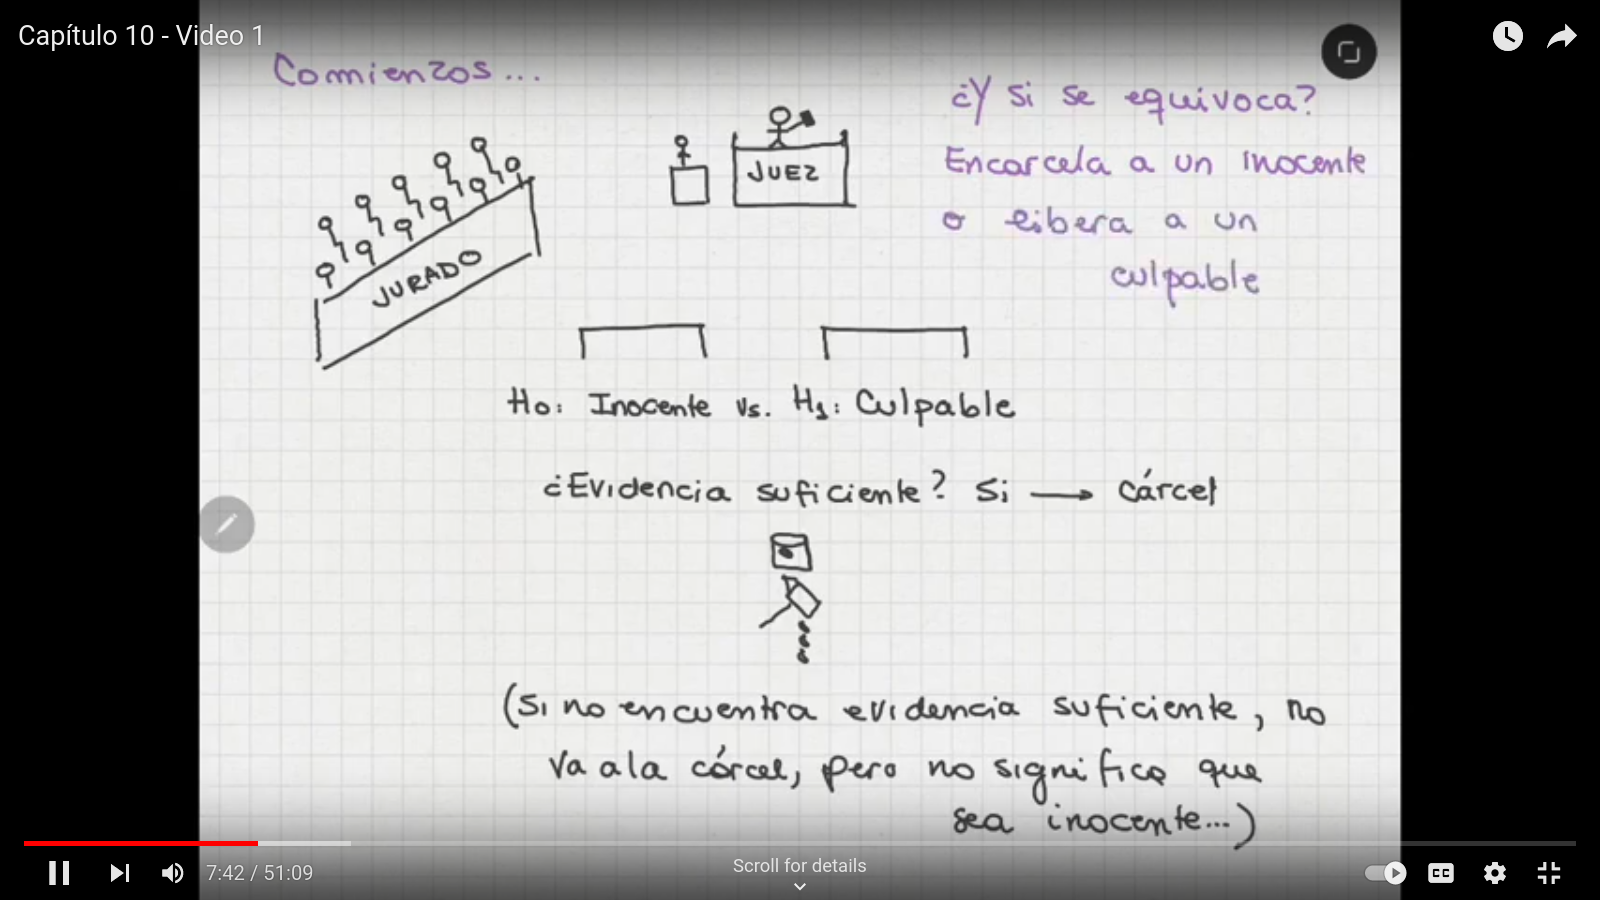 Capítulo 10 - Video 1
Comienzos...
¿Y si se equivoca?
Encarcela a un inocente
o libera a un
culpable
JUEZ
JURADO
Ho: Inocente vs. H1: Culpable
¿Evidencia suficiente? Si → cárcel
(Si no encuentra evidencia suficiente, no
va a la cárcel, pero no significa que
sea inocente...)
Scroll for details
7:42 / 51:09
CC